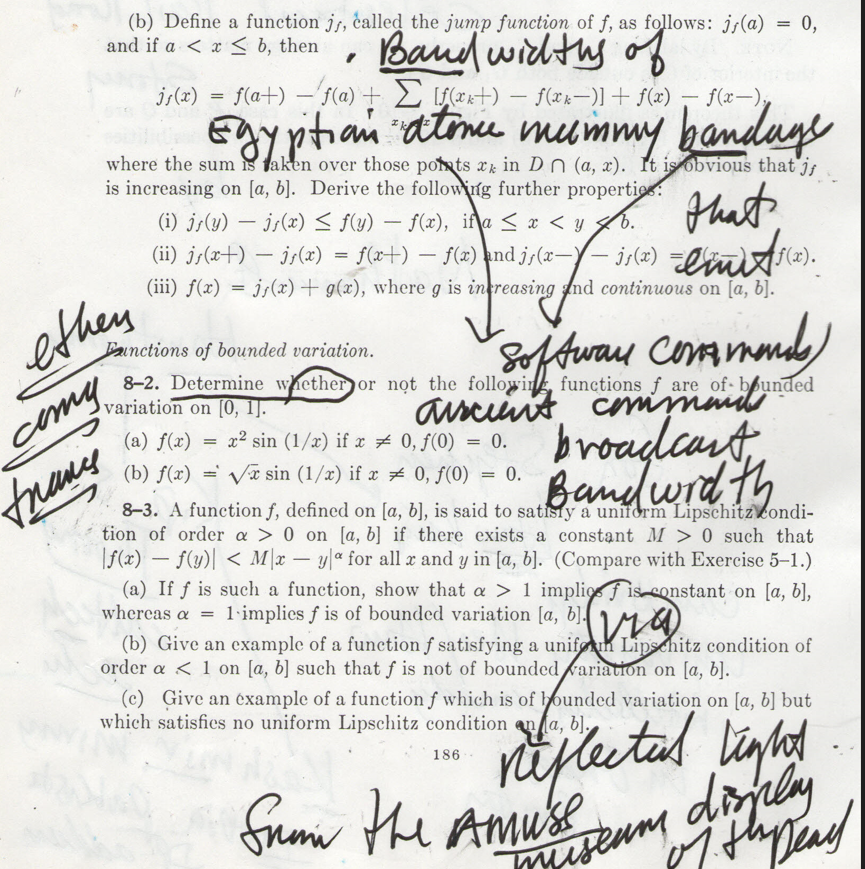 (b) Define a function j_f, called the jump function of f, as follows: j_f(a) = 0,
and if a < x ≤ b, then
. Bandwidths of
j_f(x) = f(a+) − f(a) + ∑ [f(x_k+) − f(x_k−)] + f(x) − f(x−),
Egyptian mummy bandage
where the sum is taken over those points x_k in D ∩ (a, x). It is obvious that j_f
is increasing on [a, b]. Derive the following further properties:
(i) j_f(y) − j_f(x) ≤ f(y) − f(x), if a ≤ x < y < b.
that
(ii) j_f(x+) − j_f(x) = f(x+) − f(x) and j_f(x−) − j_f(x) = f(x−) − f(x).
emit
(iii) f(x) = j_f(x) + g(x), where g is increasing and continuous on [a, b].
ethers
Functions of bounded variation.
software commands
8-2. Determine whether or not the following functions f are of bounded
variation on [0, 1].
ancient commands
comes
(a) f(x) = x² sin (1/x) if x ≠ 0, f(0) = 0.
broadcast
(b) f(x) = √x sin (1/x) if x ≠ 0, f(0) = 0.
Bandwidth
8-3. A function f, defined on [a, b], is said to satisfy a uniform Lipschitz condi-
tion of order α > 0 on [a, b] if there exists a constant M > 0 such that
|f(x) − f(y)| < M|x − y|^α for all x and y in [a, b]. (Compare with Exercise 5-1.)
(a) If f is such a function, show that α > 1 implies f is constant on [a, b],
whereas α = 1 implies f is of bounded variation [a, b].
via
(b) Give an example of a function f satisfying a uniform Lipschitz condition of
order α < 1 on [a, b] such that f is not of bounded variation on [a, b].
(c) Give an example of a function f which is of bounded variation on [a, b] but
which satisfies no uniform Lipschitz condition on [a, b].
186
reflected light
from the museum display
of the Dead